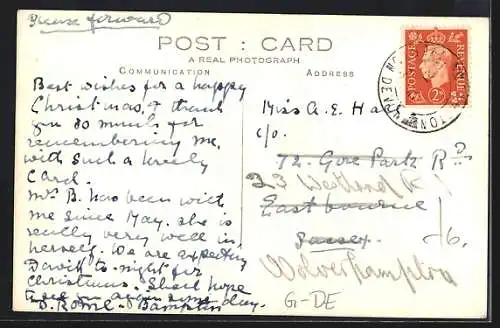 Please forward
POST : CARD
A REAL PHOTOGRAPH
COMMUNICATION
ADDRESS
POSTAGE
REVENUE
Best wishes for a happy
Christmas, & thank
you so much for
remembering me,
with such a lovely
card.
Mrs B. has been with
me since May. She is
really very well in
herself. We are expecting
David to-night for
Christmas. Shall hope
to see you again some day.
Miss A. E.
c/o.
72. Gore Park Rd
23
Eastbourne
Sussex.
Wolverhampton
G-DE